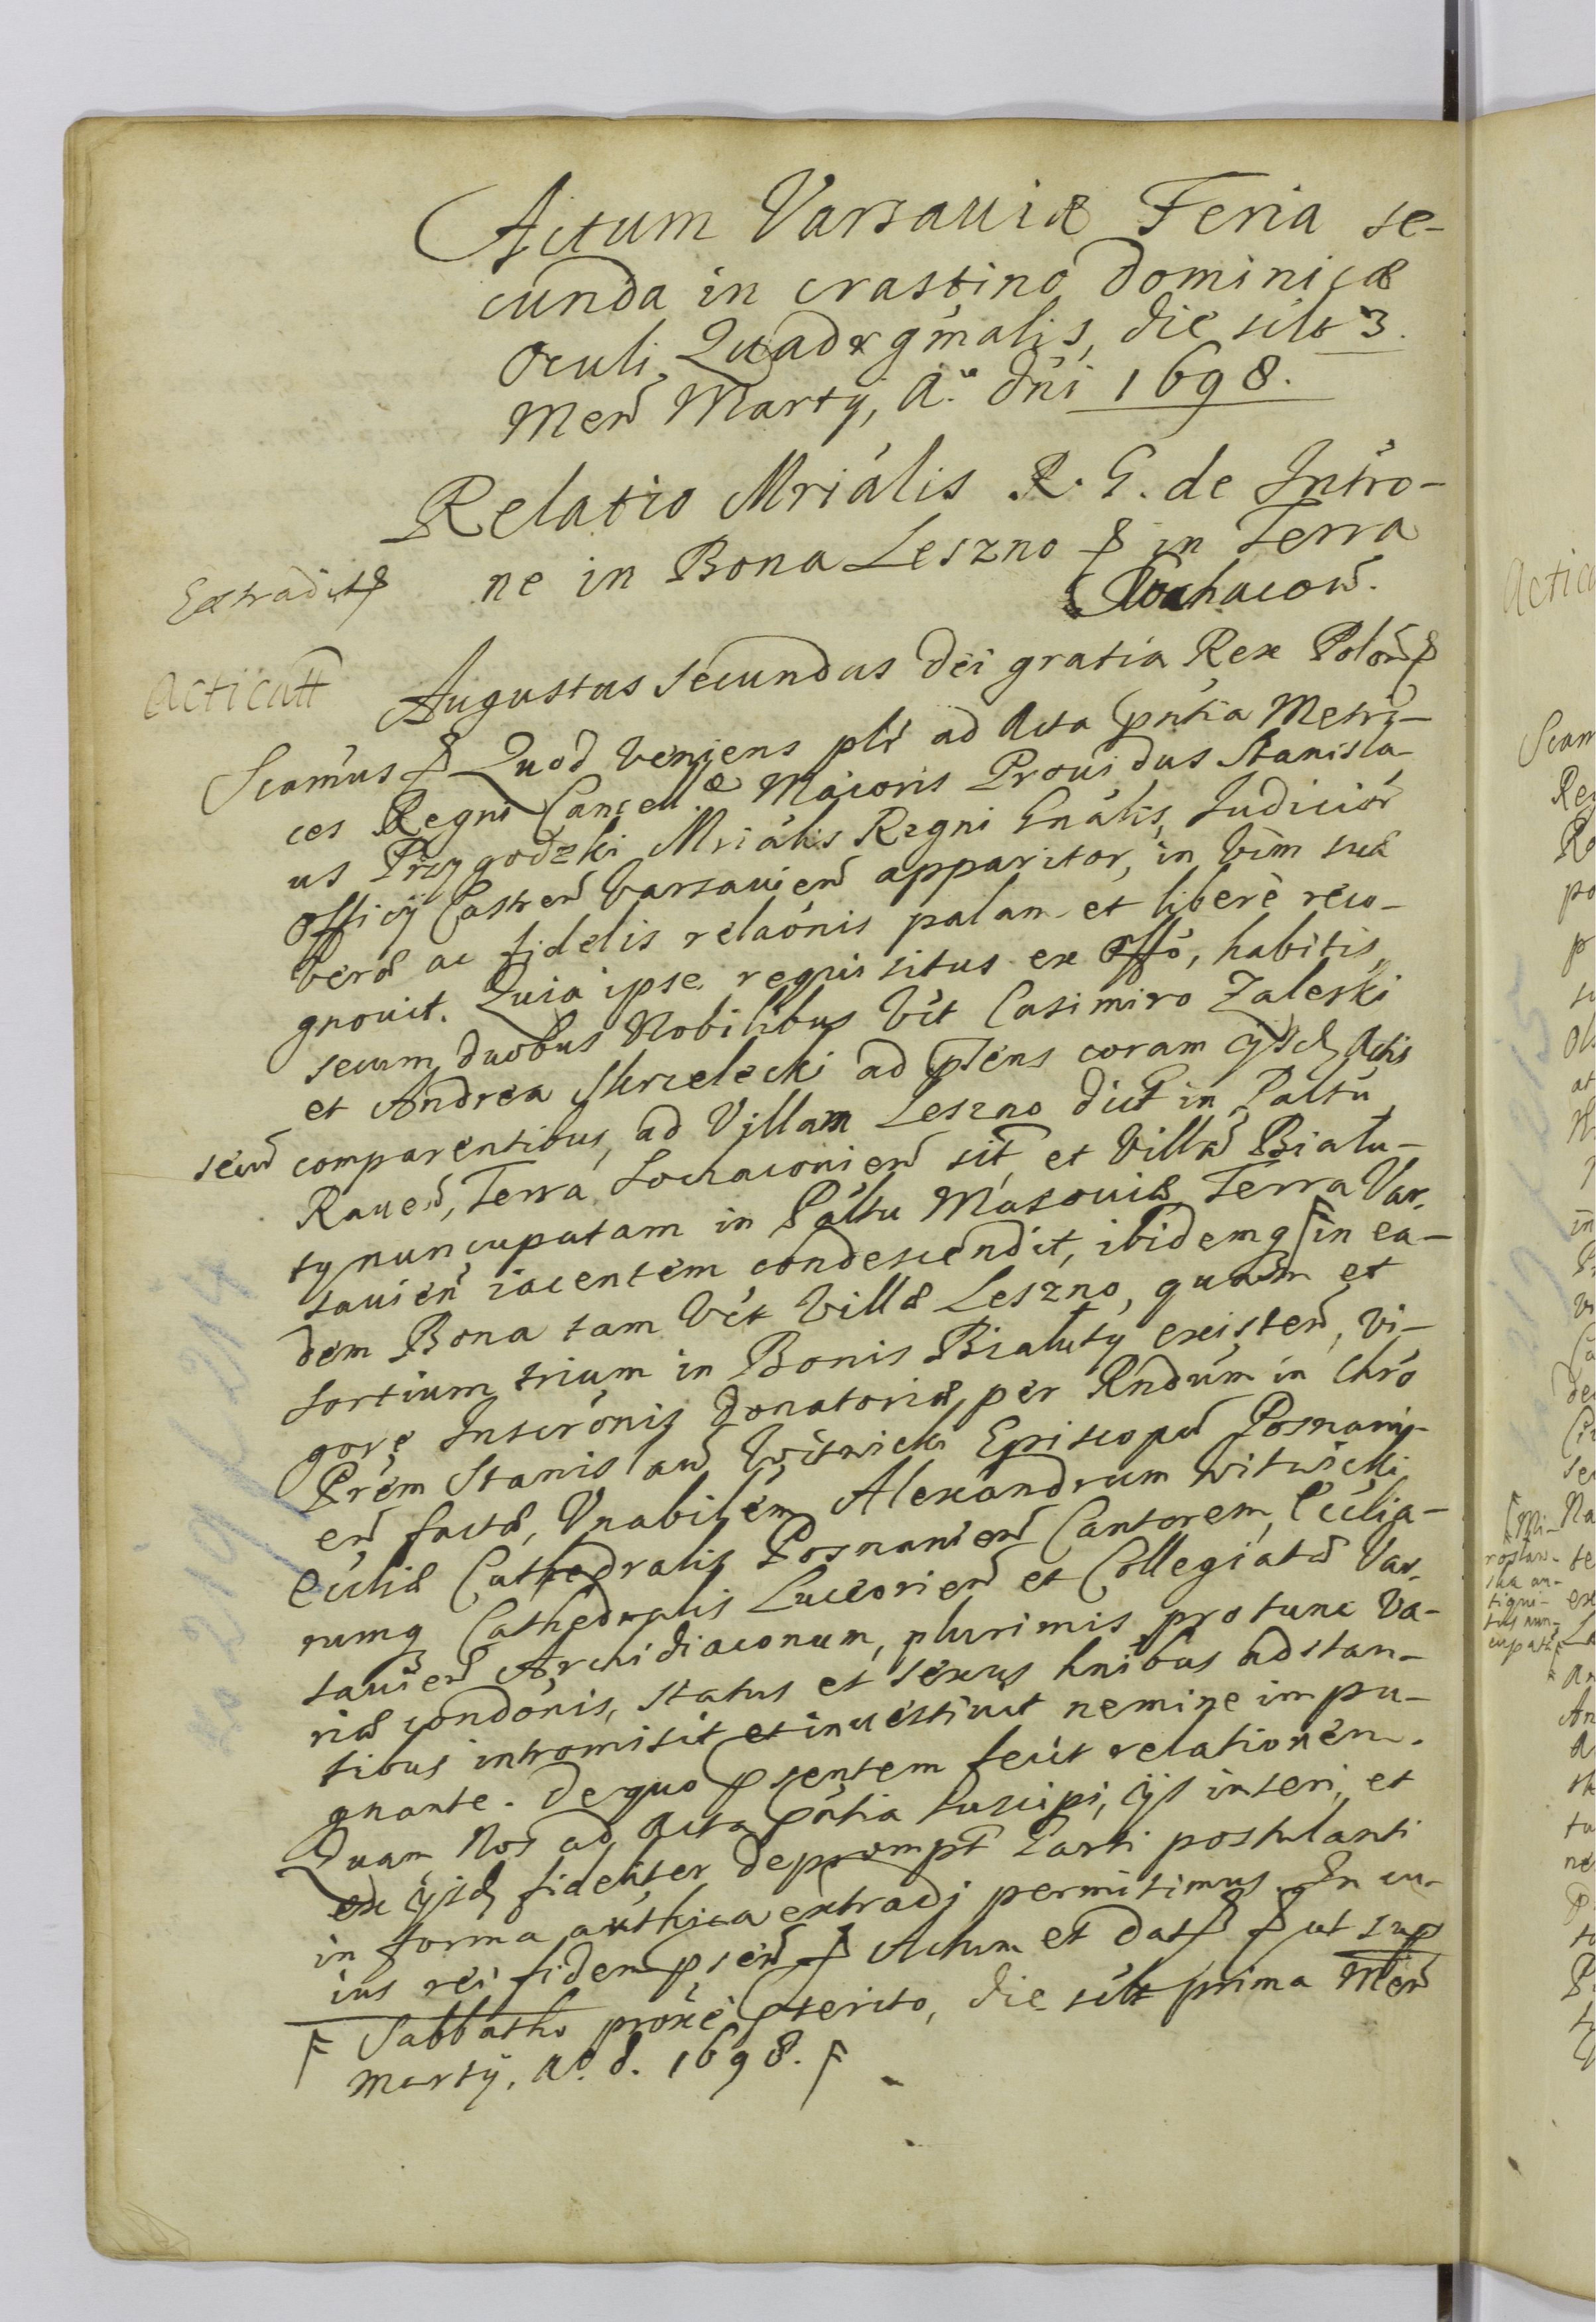 Actum Varsaviæ Feria se-
cunda in crastino Dominicæ
Oculi Quadrgmalis, die scilt 3.
Men Martij, Aº Dni 1698.
Relatio Mrialis R. G. de Intro-
ne in Bona Leszno & in Terra
Sochacow.
Extradit
Acticatt
Augustus Secundus Dei gratia Rex Polon
Scamus & Quod veniens plr ad Acta pntia Metri-
ces Regni Cancell.æ Maioris Providus Stanisla-
us Przygodzki Mrialis Regni Gnalis, Judicior
Officij Castren Varsavien apparitor, in vim suæ
veræ ac fidelis relaonis palam et liberè reco-
gnovit. Quia ipse requisitus ex Offo, habitis
secum duobus Nobilibus vit Casimiro Zaleski
et Andrea Strzelecki ad psens coram ijsd Actis
secum comparentibus, ad Villam Leszno dict in Paltu
Raven, Terra Sochaconien sit, et Villam Bialu-
ty nuncupatam in Paltu Masoviæ, Terra Var-
savien iacentem condescendit, ibidemq F in ea-
dem Bona tam vit Villæ Leszno, quam et
sortium trium in Bonis Bialuty existen, vi-
gore Inscronis Donatoriæ, per Rndum in Chro
Prem Stanislaum Witwicki Episcopum Posnani-
en factæ, Vnabilem Alexandrum Witwicki
Eccliæ Cathedralis Posnanien Cantorem, Ecclia-
rumq Cathedralis Luceorien et Collegiatæ Var-
savien Archidiaconum, plurimis protunc va-
riæ condonis, status et sexus hnibus adstan-
tibus intromisit et investivit nemine impu-
gnante. De quo psentem fecit relationem.
Quam Nos ad Acta pntia suscipi, ijs inseri, et
ex ijsd fideliter deprompt Parti postulanti
in forma authica extradi permisimus. In cu-
ius rei fidem psen & Actum et Dat & ut sup
F Sabbatho proxè pterito, die scilt prima Men
Martij, Aº. D. 1698. F